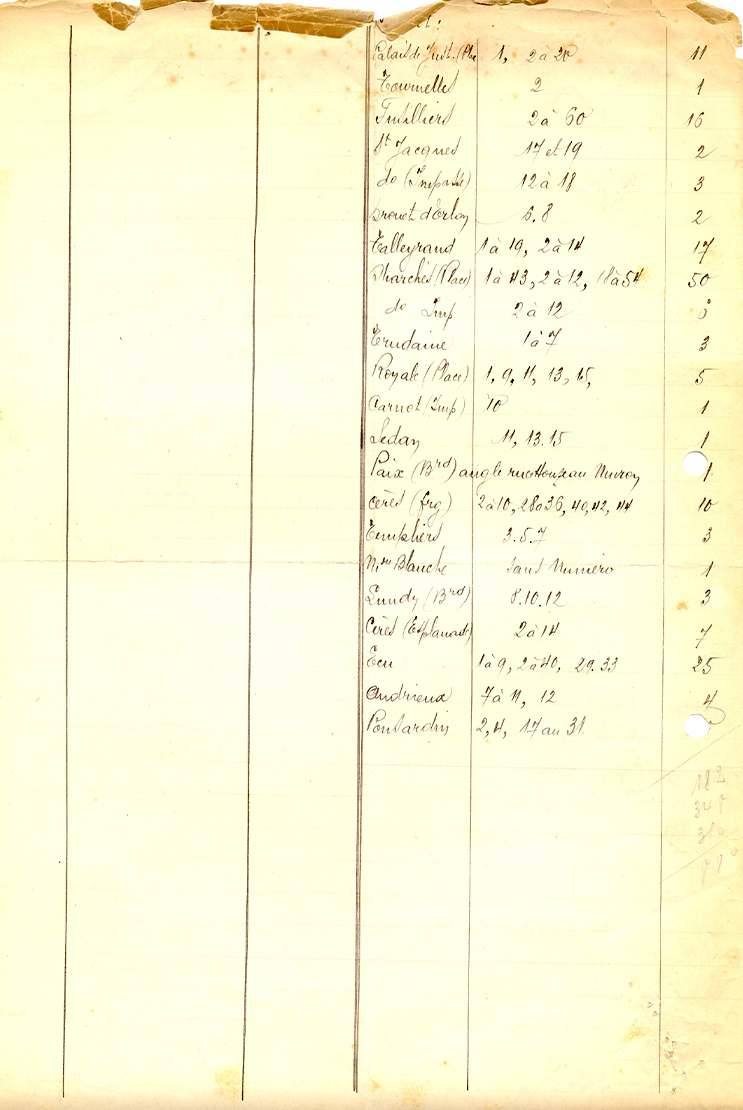 Palais de Just. (Pla 1, 2 à 20 11
Tournelles 2 1
Fusilliers 2 à 60 16
St Jacques 17 et 19 2
do (Impasse) 12 à 18 3
Drouet d'Erlon 6.8 2
Talleyrand 1 à 19, 2 à 14 17
Marchés (Place) 1 à 43, 2 à 12, 18 à 54 50
do Imp 2 à 12
Trudaine 1 à 7 3
Royale (Place) 1, 9, 11, 13, 15, 5
Carnot (Imp) 10 1
Sedan 11, 13.15 1
Paix (Brd) angle rue Houzeau Muiron 1
Cérès (frg) 2 à 10, 28 à 36, 40, 42, 44 10
Templiers 3.5.7 3
Blanche Sans Numéro 1
Lundy (Brd) 8.10.12 3
Cérès (Esplanade) 2 à 14 7
Ecu 1 à 9, 2 à 40, 29.33 25
Andrieux 7 à 11, 12 4
Ponsardin 2, 4, 17 au 31.
182
348